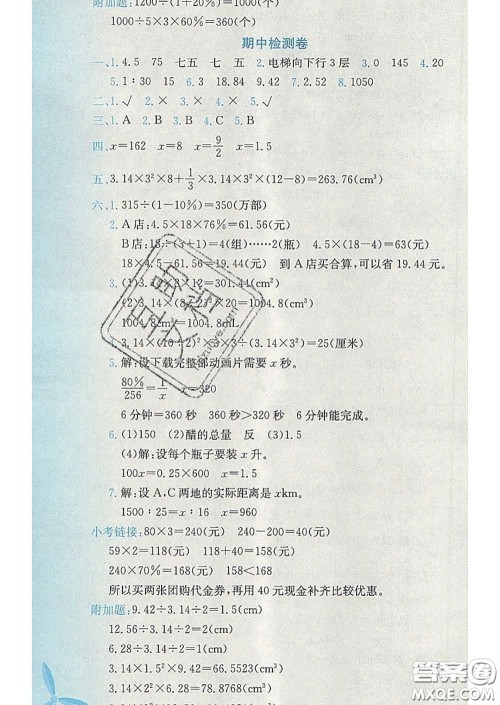 附加题:1200÷(1+20%)=1000(个)
1000÷5×3×60%=360(个)
期中检测卷
一、1. 4.5 75 七五 七 五 2. 电梯向下行3层 3. 0 145 4. 20
5. 8 6. 3 18.84 9.42 7. 2.52 8. 1050
二、1. √ 2. × 3. × 4. × 5. √
三、1. A 2. B 3. B 4. C 5. B
四、x=162 x=8 x=9/2 x=1.5
五、3.14×3²×8+1/3×3.14×3²×(12-8)=263.76(cm³)
六、1. 315÷(1-10%)=350(万部)
2. A店:4.5×18×76%=61.56(元)
B店:18÷(5+1)=4(组)……2(瓶) 4.5×(18-4)=63(元)
18×4.5-61.56=19.44(元) 到A店买合算,可以省19.44元。
3. (1)3.14
(2)3.14
=1004.8(cm³)
1004.8cm³=1004.8mL
4. 3.14×(10÷2)²×3×
=25(厘米)
5. 解:设下载完整部动画片需要x秒。
80%/256=1/x x=320
6分钟=360秒 360秒>320秒 6分钟能完成。
6. (1)150 (2)醋的总量 反 (3)1.5
(4)解:设每个瓶子要装x升。
100x=0.25×600 x=1.5
7. 解:设A,C两地的实际距离是xkm。
1500:25=x:16 x=960
小考链接:80×3=240(元) 240-200=40(元)
59×2=118(元) 118+40=158(元)
240×70%=168(元) 158<168
所以买两张团购代金券,再用40元现金补齐比较优惠。
附加题:9.42÷3.14÷2=1.5(cm)
12.56÷3.14÷2=2(cm)
6.28÷3.14÷2=1(cm)
3.14×1.5²×9.42=66.5523(cm³)
3.14×2²×6.28=78.8768(cm³)
答案圈
MXQE.COM